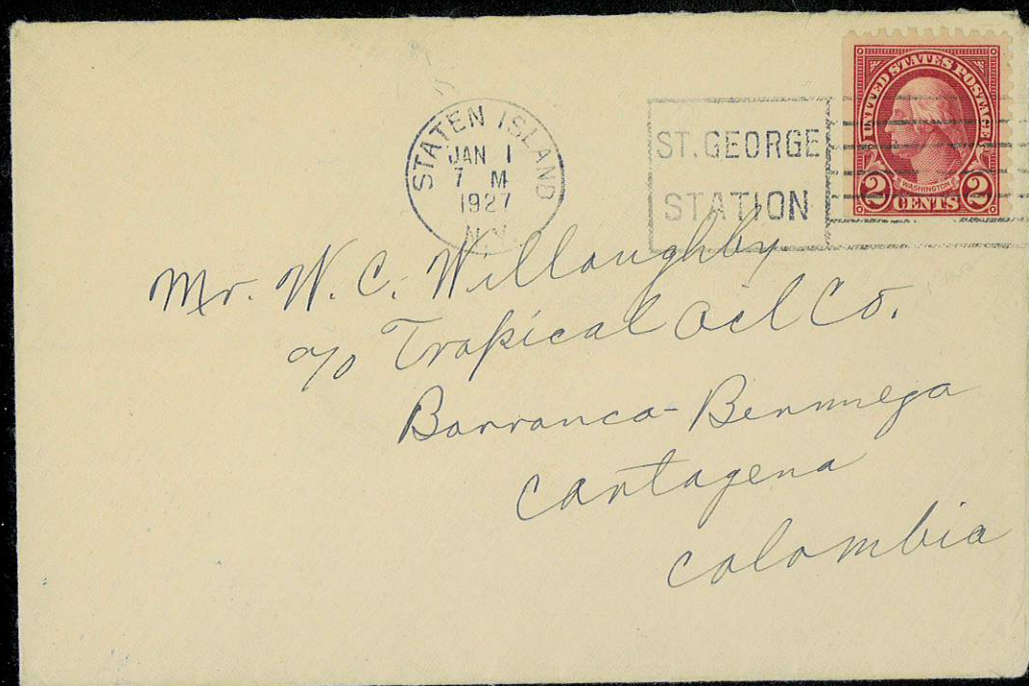 STATEN ISLAND
JAN 1
7 M
1927
N.Y.
ST. GEORGE
STATION
UNITED STATES POSTAGE
WASHINGTON
2 CENTS 2
Mr. W. C. Willoughby
c/o Tropical Oil Co.
Barranca-Bermmega
Cartagena
Colombia